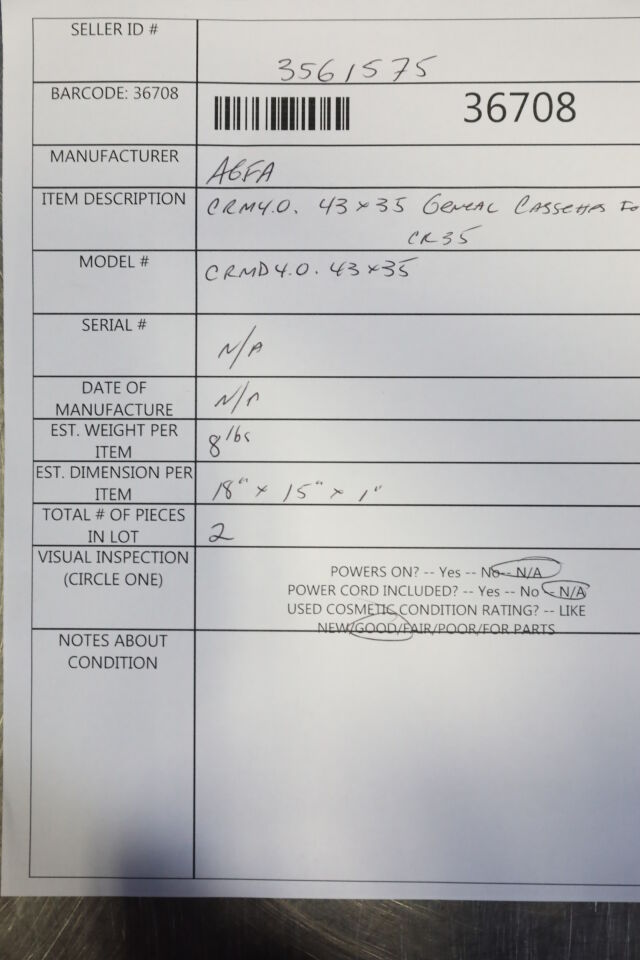 SELLER ID #
3561575
BARCODE: 36708
36708
MANUFACTURER
AGFA
ITEM DESCRIPTION
CRM4.0. 43x35 General Cassettes Fo
CR35
MODEL #
CRMD4.0. 43x35
SERIAL #
N/A
DATE OF
MANUFACTURE
N/A
EST. WEIGHT PER
ITEM
8 lbs
EST. DIMENSION PER
ITEM
18" x 15" x 1"
TOTAL # OF PIECES
IN LOT
2
VISUAL INSPECTION
(CIRCLE ONE)
POWERS ON? -- Yes -- No-- N/A
POWER CORD INCLUDED? -- Yes -- No -- N/A
USED COSMETIC CONDITION RATING? -- LIKE
NEW/GOOD/FAIR/POOR/FOR PARTS
NOTES ABOUT
CONDITION